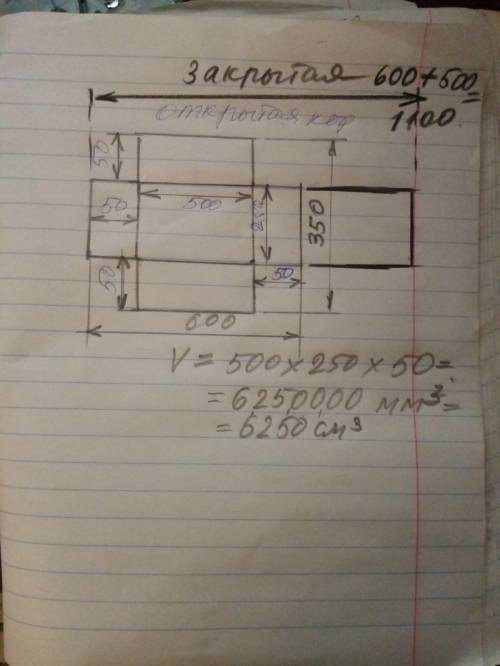 Закрытая 600+500=
открытая кор
1100.
50
50
500
250
350
50
50
600
V = 500×250×50=
=6250000 мм³=
=6250 см³